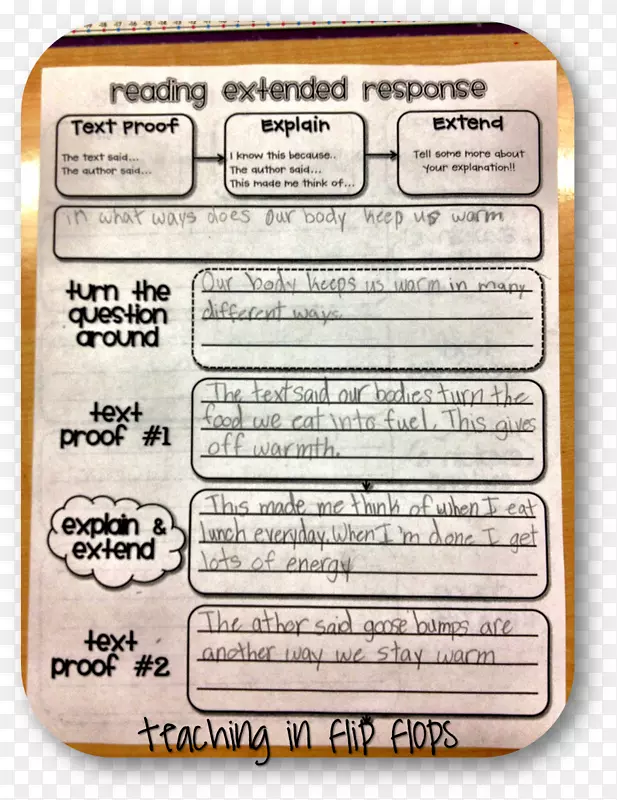 reading extended response
Text Proof
The text said...
The author said...
Explain
I know this because..
The author said...
This made me think of...
Extend
Tell some more about
your explanation!!
in what ways does our body keep us warm
turn the
question
around
Our body keeps us warm in many
different ways.
text
proof #1
The text said our bodies turn the
food we eat into fuel. This gives
off warmth.
explain &
extend
This made me think of when I eat
lunch everyday. When I'm done I get
lots of energy
text
proof #2
The athor said goose bumps are
another way we stay warm
teaching in flip flops